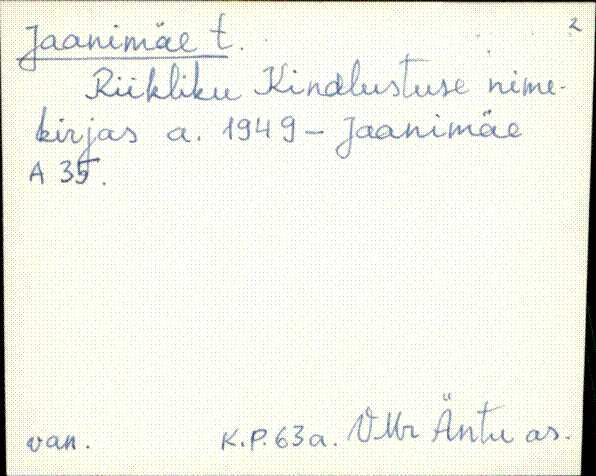 2
Jaanimäe t.
Riikliku Kindlustuse nime-
kirjas a. 1949 - Jaanimäe
A 35.
van. K.P. 63a. VMr Äntu as.